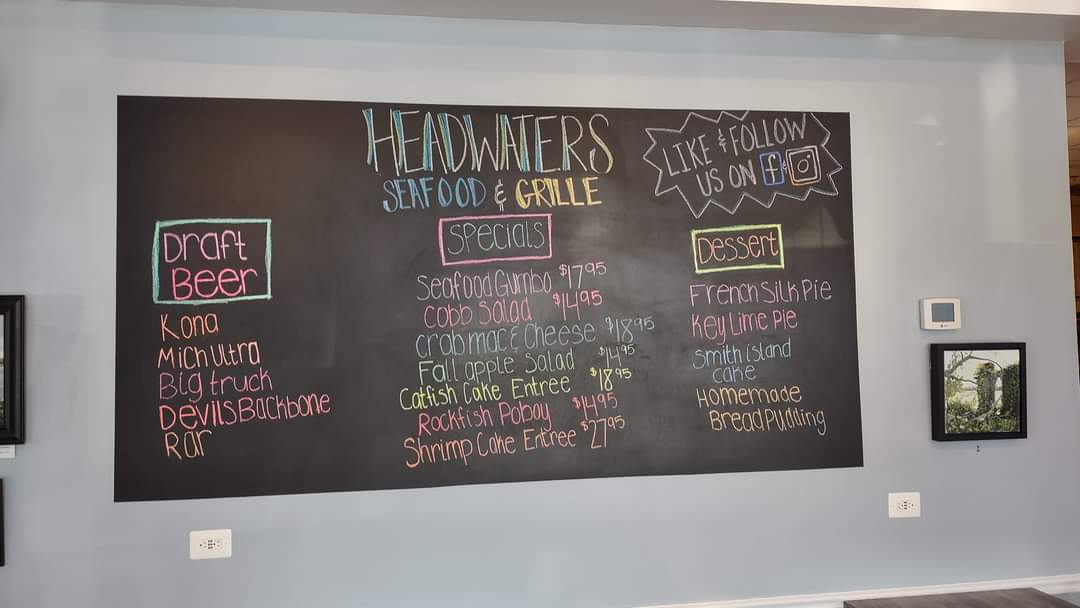 HEADWATERS
SEAFOOD & GRILLE
LIKE & FOLLOW
US ON f &
Draft
Beer
Kona
Mich Ultra
Big truck
Devils Backbone
Rar
Specials
Seafood Gumbo $17.95
Cobb Salad $14.95
crab mac & Cheese $18.95
Fall apple Salad $14.95
Catfish Cake Entree $18.95
Rockfish Poboy $14.95
Shrimp Cake Entree $27.95
Dessert
French Silk Pie
Key Lime Pie
Smith island
cake
Homemade
Bread Pudding